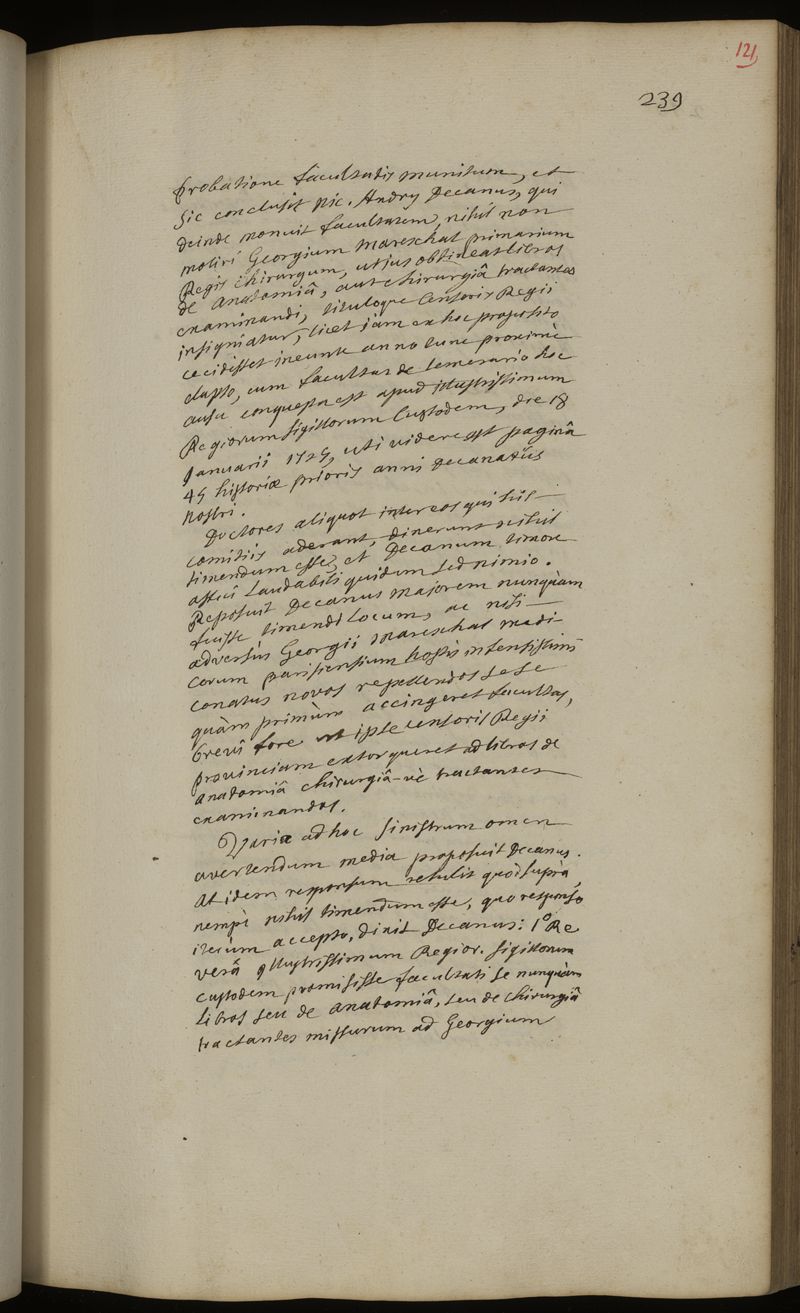 121
239
probatione facultatis munitum, et
sic conclusit Nic. Andry Decanus, qui
deinde monuit facultatem, nihil non
moliri Georgium Mareschal primarium
Regis Chirurgum, ut jus obtineat libros
de Anatomiâ, aut chirurgiâ tractantes
examinandi, tituloque Censoris Regii
insigniatur, licet jam ex hoc proposito
cecidisset ineunte anno tunc proximè
elapso, cum facultas de temerario hoc
ausu conquesta est apud illustrissimum
Regiorum sigillorum Custodem, die 18
Januarii 1725, uti videre est paginâ
45 historiæ prioris anni Decanatûs
nostri.
Doctores aliquot inter eos qui his
comitiis aderant, dixerunt nihil
timendum esse, et Decanum timore
affici laudabili quidem sed nimio.
Reposuit Decanus majorem nunquàm
fuisse timendi locum, ac nisi
adversùs Georgii Mareschal medi-
corum parisiensium hostis infensissimi
conatus novos repellendos sese
quàm primùm accingeret facultas,
brevi fore ut ipse censoris Regii
provinciam extorqueret ad libros de
anatomiâ chirurgiâ-vè tractantes
examinandos.
Varia ad hoc sinistrum omen
avertendum media proposuit Decanus.
At idem responsum retulit quod suprà,
nempè nihil timendum esse, quo responso
iterùm accepto, dixit Decanus: 1º Re
verâ Illustrissimum Regior. sigillorum
custodem promisisse facultati se nunquàm
libros seu de anatomiâ, seu de chirurgiâ
tractantes missurum ad Georgium